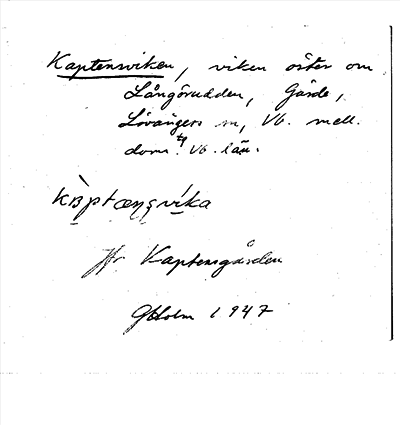 Kaptensviken, viken öster om
Långörudden, Gärde,
Lövångers sn, Vb. mell.
doms. tg Vb. län.
kàptænsvíka
Jfr Kaptensgården
GHolm 1947